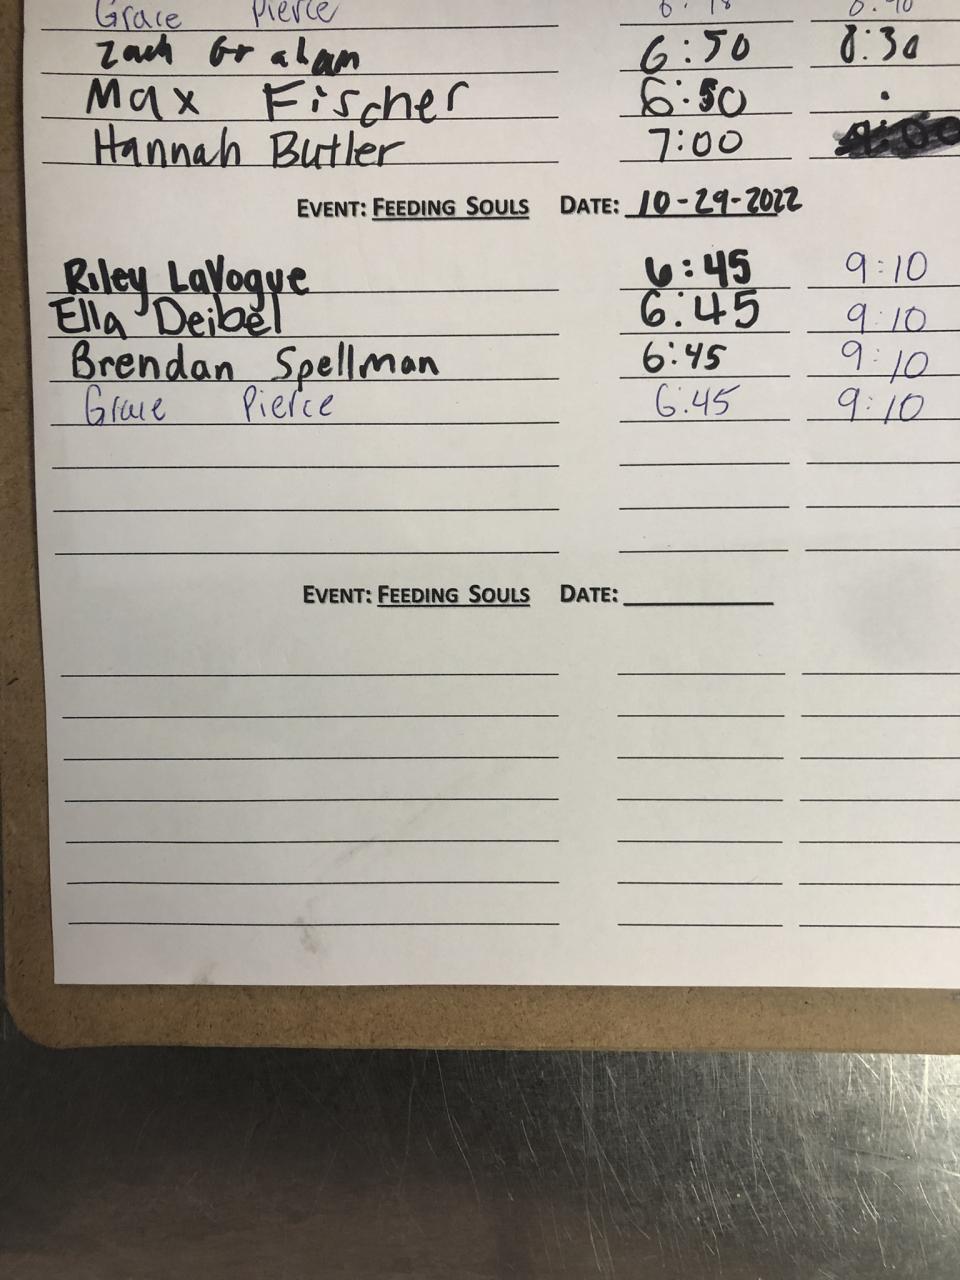 Grace Pierce 6:18 8:40
Zach Graham 6:50 8:30
Max Fischer 6:50 .
Hannah Butler 7:00
EVENT: FEEDING SOULS DATE: 10-29-2022
Riley LaVogue 6:45 9:10
Ella Deibel 6:45 9:10
Brendan Spellman 6:45 9:10
Grace Pierce 6:45 9:10
EVENT: FEEDING SOULS DATE: